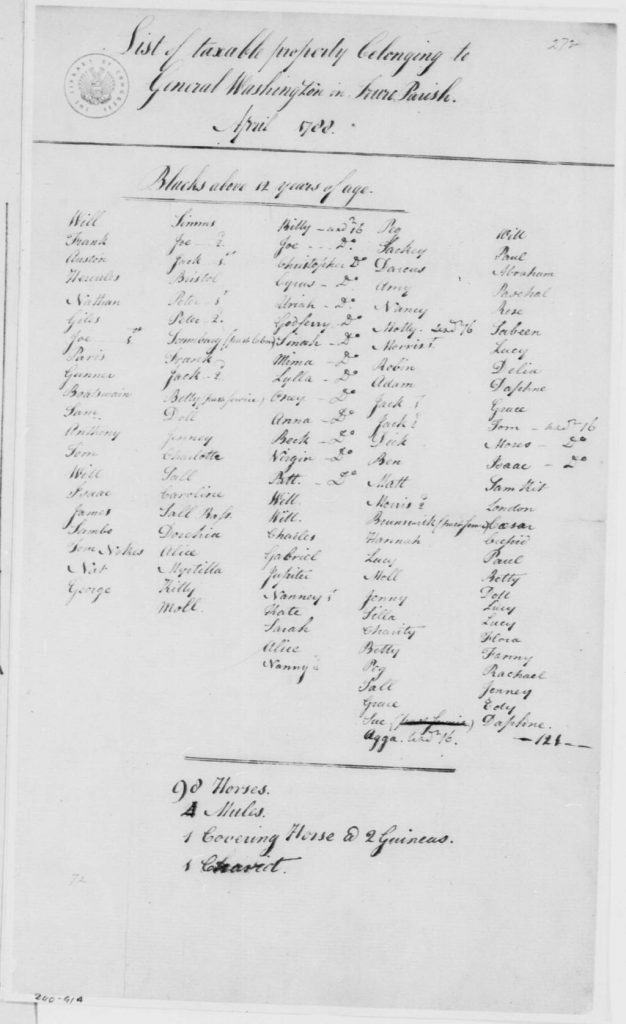 272
List of taxable property belonging to
General Washington in Truro Parish.
April 1788.
Blacks above 12 years of age.
Will
Frank
Auston
Hercules
Nathan
Giles
Joe
Paris
Gunner
Boatswain
Sam
Anthony
Tom
Will
Isaac
James
Sambo
Tom Nokes
Nat
George
Simms
Joe - 2.
Jack - 1
Bristol
Peter - 1
Peter - 2.
Frank
Jack - 2
Betty (past service)
Doll
Jenney
Charlotte
Sall
Caroline
Sall Brass
Dorchia
Alice
Myrtilla
Kitty
Moll.
Billy - undr 16
Joe - Do
Christopher Do
Cyrus - Do
Uriah - Do
Godferry - Do
Sinah - Do
Mima - Do
Lylla - Do
Oney - Do
Anna - Do
Beck - Do
Virgin - Do
Patt. - Do
Will
Will
Charles
Gabriel
Jupiter
Nanney 1
Kate
Sarah
Alice
Nanny 2
Peg
Sackey
Darcus
Amy
Nancy
Molly undr 16
Morris 1
Robin
Adam
Jack 1
Jack 2
Dick
Ben
Matt
Morris 2
Brunswick (past service)
Hannah
Lucy
Moll
Jenny
Silla
Charity
Betty
Peg
Sall
Grace
Sue (past service)
Agga undr 16.
Will
Paul
Abraham
Paschal
Rose
Sabeen
Lucy
Delia
Daphne
Grace
Tom - undr 16
Moses - Do
Isaac - Do
Sam Kit
London
Cæsar
Paul
Betty
Doll
Lucy
Lucy
Flora
Fanny
Rachael
Jenney
Edy
Daphne.
- 121 -
98 Horses.
4 Mules.
1 Covering Horse @ 2 Guineas.
1 Chariot.
72